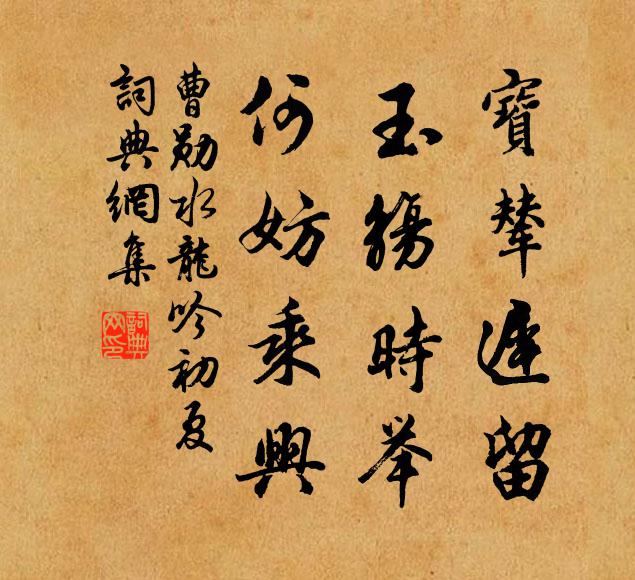 寶輦遲留
玉觴時举
何妨乘興
曹勋水龍吟初夏
詞典網集
詞典
网印